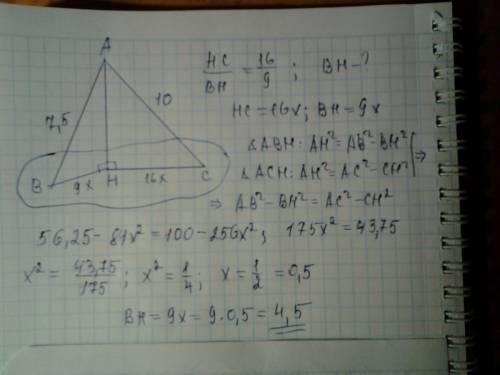 A
7,5
10
B
9x
H
16x
C
HC/BH = 16/9 ; BH - ?
HC = 16x ; BH = 9x
△ABH: AH² = AB² - BH²
△ACH: AH² = AC² - CH² | ⇒
⇒ AB² - BH² = AC² - CH²
56,25 - 81x² = 100 - 256x² ; 175x² = 43,75
x² = 43,75/175 ; x² = 1/4 ; x = 1/2 = 0,5
BH = 9x = 9·0,5 = 4,5